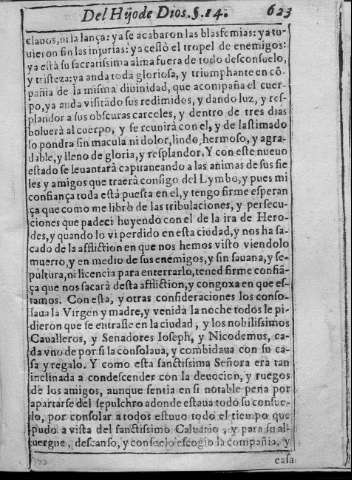 Del Hijo de Dios. §. 14. 623
clauos, ni la lança: ya se acabaron las blasfemias: ya tu-
uieron fin las injurias: ya cessò el tropel de enemigos:
ya está su sacratissima alma fuera de todo desconsuelo,
y tristeza: ya anda toda gloriosa, y triumphante en cō-
pañia de la misma diuinidad, que acompaña el cuer-
po, ya anda visitādo sus redimidos, y dando luz, y res-
plandor a sus obscuras carceles, y dentro de tres dias
boluerá al cuerpo, y se reunirá con el, y de lastimado
lo pondra sin macula ni dolor, lindo, hermoso, y agra-
dable, y lleno de gloria, y resplandor. Y con este nueuo
estado se leuantará capitaneando a las animas de sus fie
les y amigos que traerá consigo del Lymbo, y pues mi
confiança toda está puesta en el, y tengo firme esperan
ça que como me libro de las tribulaciones, y persecu-
ciones que padeci huyendo con el de la ira de Hero-
des, y quando lo vi perdido en esta ciudad, y nos ha sa-
cado de la affliction en que nos hemos visto viendolo
muerto, y en medio de sus enemigos, y sin sauana, y se-
pultura, ni licencia para enterrarlo, tened firme confiā-
ça que nos sacará desta affliction, y congoxa en que es-
tamos. Con esta, y otras consideraciones los conso-
laua la Virgen y madre, y venida la noche todos le pi-
dieron que se entrasse en la ciudad, y los nobilissimos
Caualleros, y Senadores Ioseph, y Nicodemus, ca-
da vno de por si la consolaua, y combidaua con su ca-
sa y regalo. Y como esta sanctissima Señora era tan
inclinada a condescender con la deuocion, y ruegos
de los amigos, aunque sentia en si notable pena por
apartarse del sepulchro adonde estaua todo su consue-
lo, por consolar a todos estuuo todo el tiempo que
pudo a vista del sanctissimo Caluario, y para su al-
uergue, descanso, y consuelo escogio la compañia, y
casa